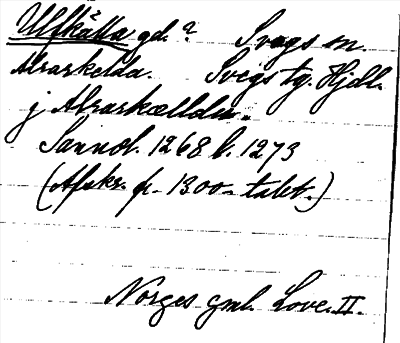 Ulfkälla gd.? Svegs sn.
Alraskelda. Svegs tg. Hjdl.
j Alraskælldu.
Sannol. 1268 l. 1273
(Afskr. fr. 1300-talet.)
Norges gml. Love. II.